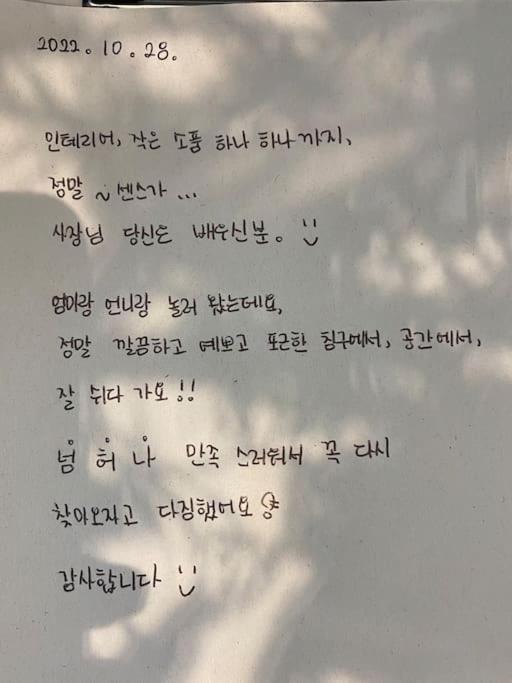 2022. 10. 28.
인테리어, 작은 소품 하나 하나까지,
정말 ~ 센스가 ...
사장님 당신은 배우신분。 :)
엄마랑 언니랑 놀러 왔는데요,
정말 깔끔하고 예쁘고 포근한 침구에서, 공간에서,
잘 쉬다 가요!!
넘 허 나 만족 스러워서 꼭 다시
찾아오자고 다짐했어요
감사합니다 :)